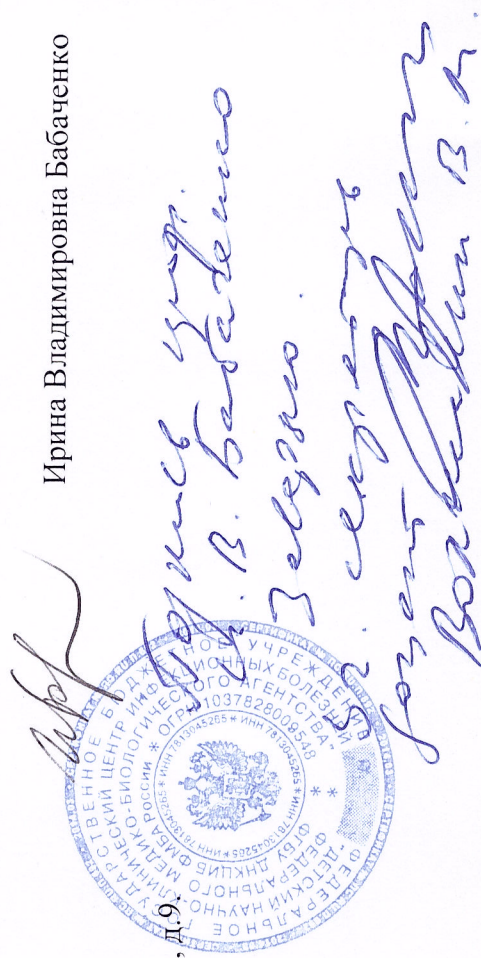 Ирина Владимировна Бабаченко
, д.9.
Подпись проф.
И. В. Бабаченко
Заверяю.
Уч. секретарь
доцент
В. М.
ФЕДЕРАЛЬНОЕ ГОСУДАРСТВЕННОЕ БЮДЖЕТНОЕ УЧРЕЖДЕНИЕ
"ДЕТСКИЙ НАУЧНО-КЛИНИЧЕСКИЙ ЦЕНТР ИНФЕКЦИОННЫХ БОЛЕЗНЕЙ
ФЕДЕРАЛЬНОГО МЕДИКО-БИОЛОГИЧЕСКОГО АГЕНТСТВА"
ФГБУ ДНКЦИБ ФМБА РОССИИ * ОГРН 1037828009548 *
* ИНН 7813045265 * ИНН 7813045265 * ИНН 7813045265